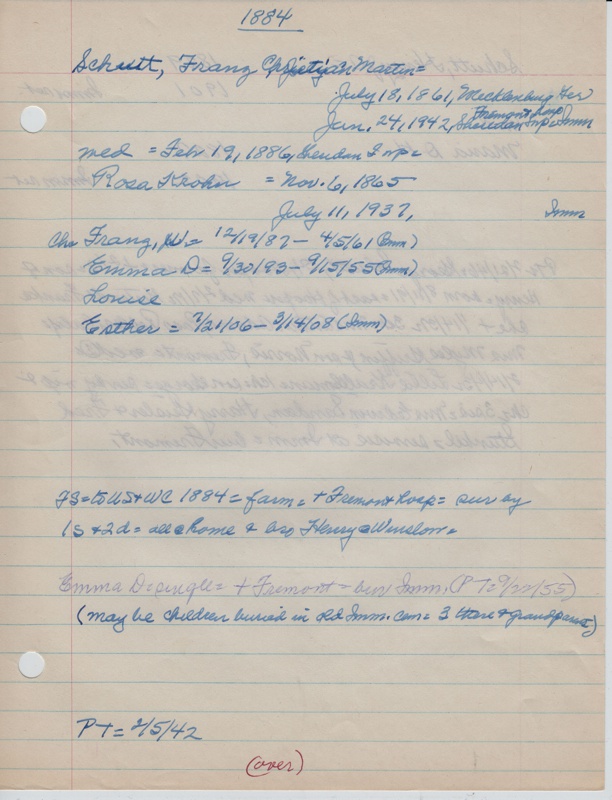 1884
Schutt, Franz Christian Martin =
July 18, 1861, Mecklenburg Ger
Fremont hosp
Jan. 24, 1942, Sheridan Tnp = Imm
med = Feb 19, 1886, Sheridan Tnp =
Rosa Krohn = Nov. 6, 1865
July 11, 1937, Imm
Ch = Franz, = 12/19/87 - 4/5/61 (Imm)
Emma D = 9/30/93 - 9/15/55 (Imm)
Louise
Esther = 2/21/06 - 3/14/08 (Imm)
FS = to US & WC 1884 = farm = + Fremont hosp = sur by
1s & 2d = all @ home & bro Henry @ Winslow =
Emma D = single = + Fremont = bur Imm. (P T = 9/22/55)
(may be children buried in old Imm. cem = 3 there & grandparents)
P T = 2/5/42
(over)